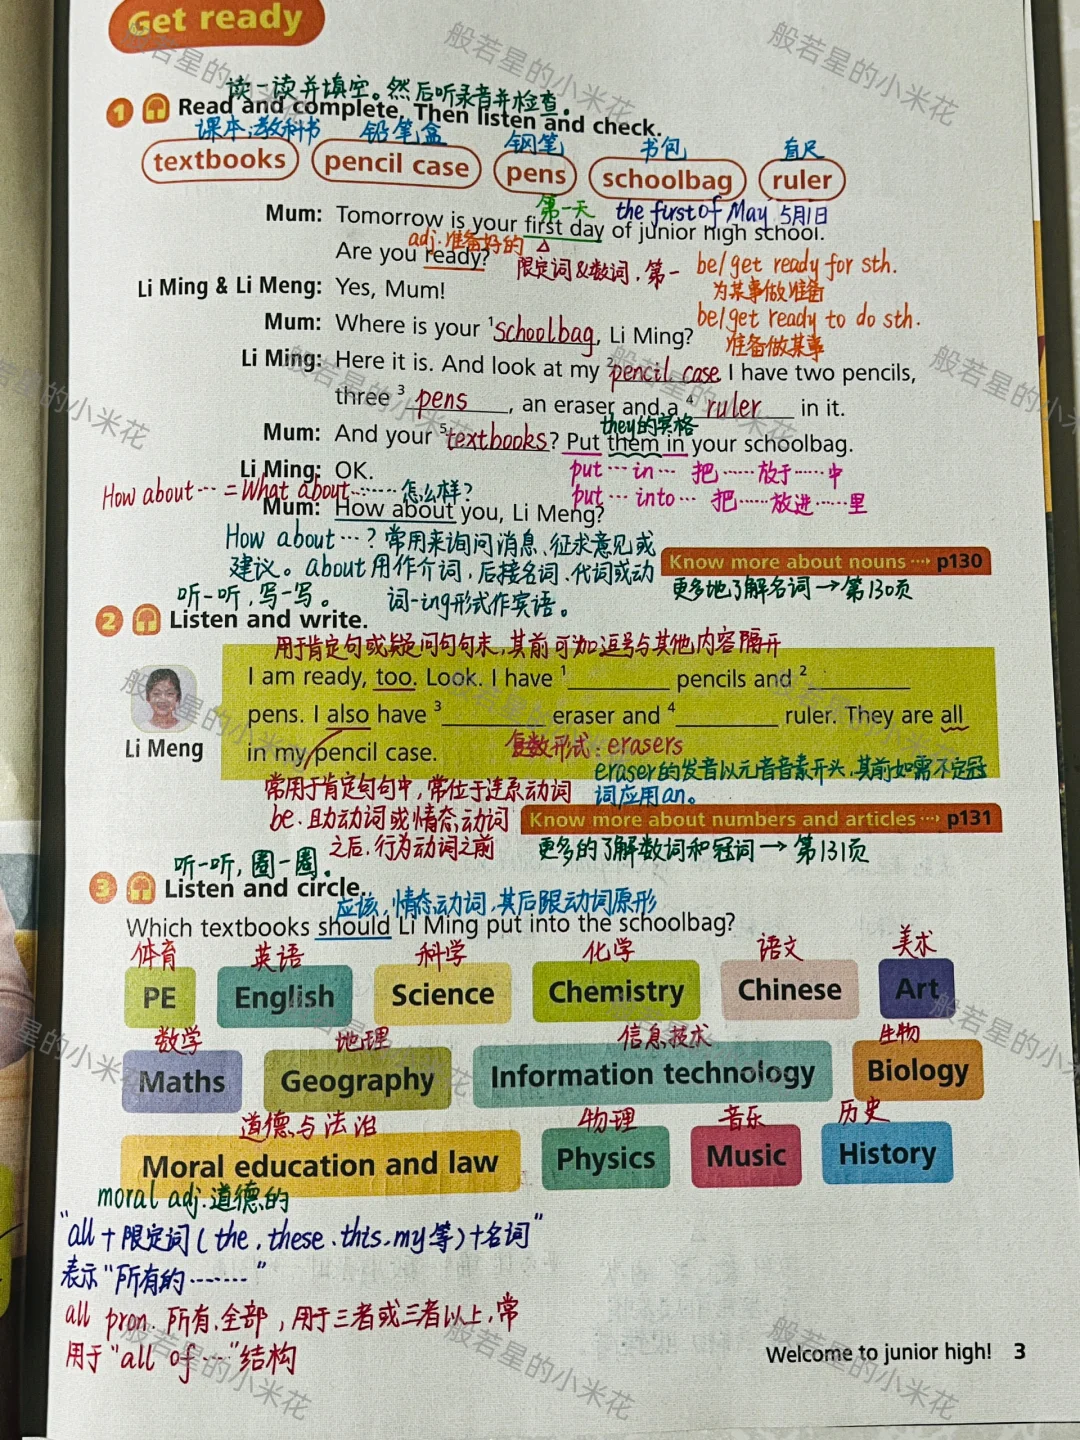 Get ready
读一读并填空。然后听录音并检查。
1 Read and complete. Then listen and check.
课本;教科书 铅笔盒 钢笔 书包 直尺
textbooks pencil case pens schoolbag ruler
第一天 the first of May 5月1日
Mum: Tomorrow is your first day of junior high school.
adj. 准备好的
Are you ready?
限定词&数词,第一
be/get ready for sth.
为某事做准备
Li Ming & Li Meng: Yes, Mum!
be/get ready to do sth.
准备做某事
Mum: Where is your 1 schoolbag, Li Ming?
Li Ming: Here it is. And look at my 2 pencil case. I have two pencils,
three 3 pens, an eraser and a 4 ruler in it.
they的宾格
Mum: And your 5 textbooks? Put them in your schoolbag.
Li Ming: OK.
put…in… 把……放于……中
put…into… 把……放进……里
How about… = What about……怎么样?
Mum: How about you, Li Meng?
How about…? 常用来询问消息、征求意见或
建议。about用作介词,后接名词、代词或动
词-ing形式作宾语。
Know more about nouns ··· p130
更多地了解名词→第130页
听一听,写一写。
2 Listen and write.
用于肯定句或疑问句句末,其前可加逗号与其他内容隔开
I am ready, too. Look. I have 1 pencils and 2
pens. I also have 3 eraser and 4 ruler. They are all
in my pencil case.
Li Meng
复数形式: erasers
eraser的发音以元音音素开头,其前如需不定冠
词应用an。
常用于肯定句句中,常位于连系动词
be、助动词或情态动词
之后,行为动词之前
Know more about numbers and articles ··· p131
更多的了解数词和冠词→第131页
听一听,圈一圈。
3 Listen and circle.
应该,情态动词,其后跟动词原形
Which textbooks should Li Ming put into the schoolbag?
体育 英语 科学 化学 语文 美术
PE English Science Chemistry Chinese Art
数学 地理 信息技术 生物
Maths Geography Information technology Biology
道德与法治 物理 音乐 历史
Moral education and law Physics Music History
moral adj. 道德的
"all+限定词(the、these、this、my等)+名词"
表示"所有的……"
all pron. 所有、全部,用于三者或三者以上,常
用于"all of…"结构
Welcome to junior high! 3
般若星的小米花